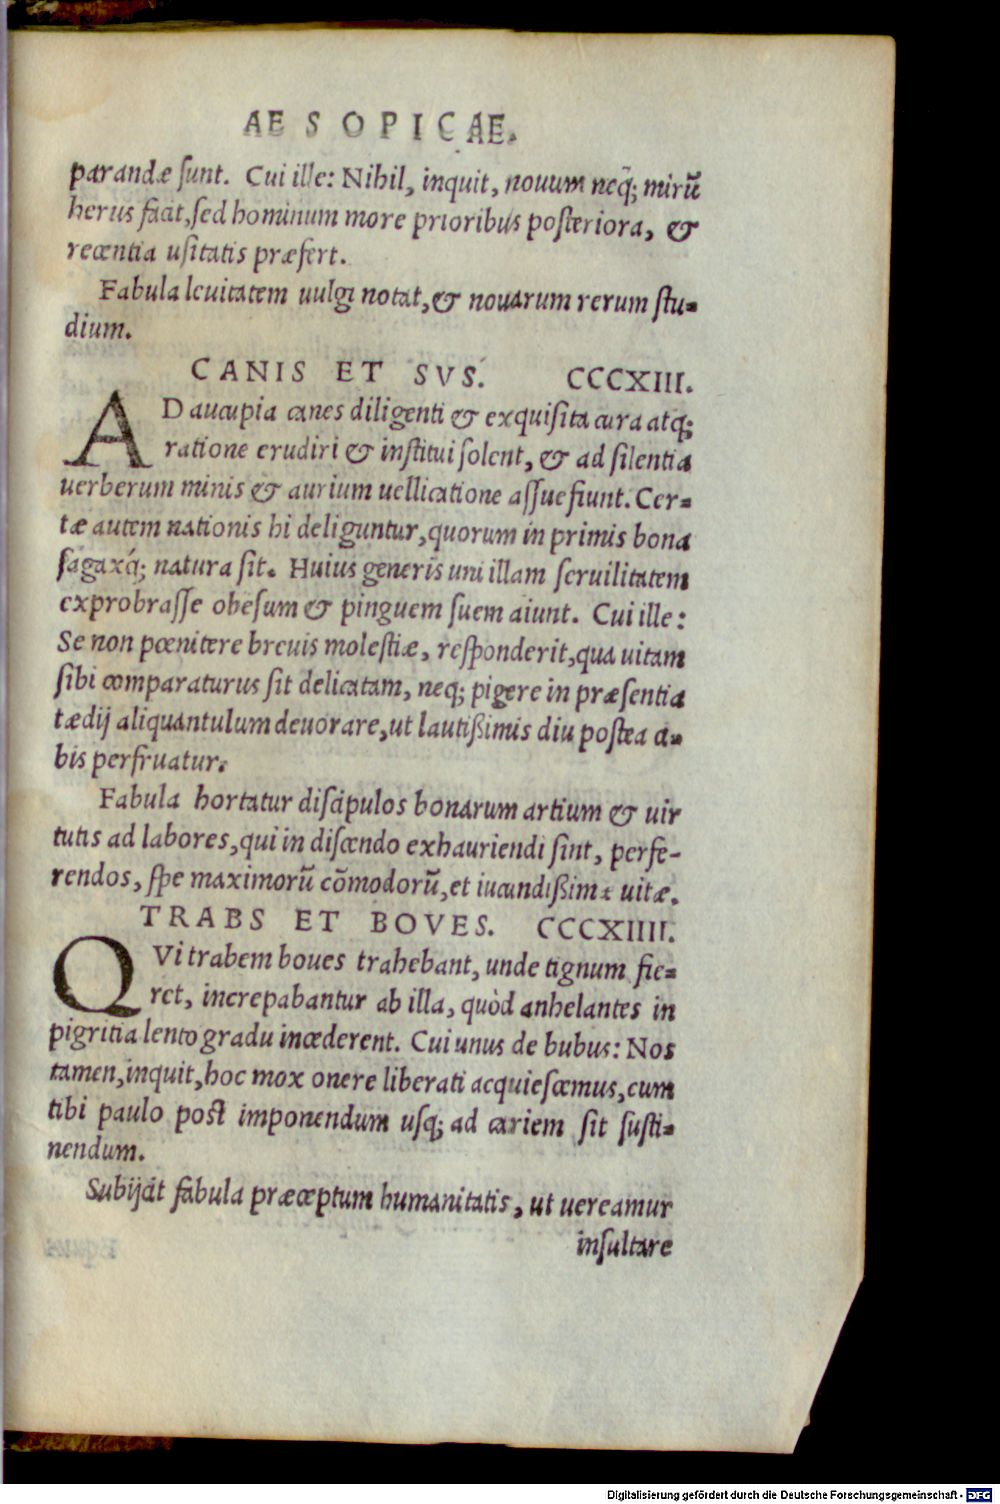 AESOPICAE.
parandæ ſunt. Cui ille: Nihil, inquit, nouum neq́; mirũ
herus facit, ſed hominum more prioribus poſteriora, &
recentia uſitatis præfert.
Fabula leuitatem uulgi notat, & nouarum rerum ſtu-
dium.
CANIS ET SVS. CCCXIII.
AD aucupia canes diligenti & exquiſita cura atq;
ratione erudiri & inſtitui ſolent, & ad ſilentia
uerberum minis & aurium uellicatione aſſuefiunt. Cer-
tæ autem nationis hi deliguntur, quorum in primis bona
ſagaxq́; natura ſit. Huius generis uni illam ſeruilitatem
exprobraſſe obeſum & pinguem ſuem aiunt. Cui ille:
Se non pœnitere breuis moleſtiæ, reſponderit, qua uitam
ſibi comparaturus ſit delicatam, neq; pigere in præſentia
tædij aliquantulum deuorare, ut lautißimis diu poſtea ci-
bis perfruatur.
Fabula hortatur diſcipulos bonarum artium & uir
tutis ad labores, qui in diſcendo exhauriendi ſint, perfe-
rendos, ſpe maximorũ cõmodorũ, et iucundißimæ uitæ.
TRABS ET BOVES. CCCXIIII.
QVi trabem boues trahebant, unde tignum fie-
ret, increpabantur ab illa, quòd anhelantes in
pigritia lento gradu incederent. Cui unus de bubus: Nos
tamen, inquit, hoc mox onere liberati acquieſcemus, cum
tibi paulo poſt imponendum uſq; ad cariem ſit ſuſti-
nendum.
Subijcit fabula præceptum humanitatis, ut uereamur
inſultare
Digitalisierung gefördert durch die Deutsche Forschungsgemeinschaft - DFG